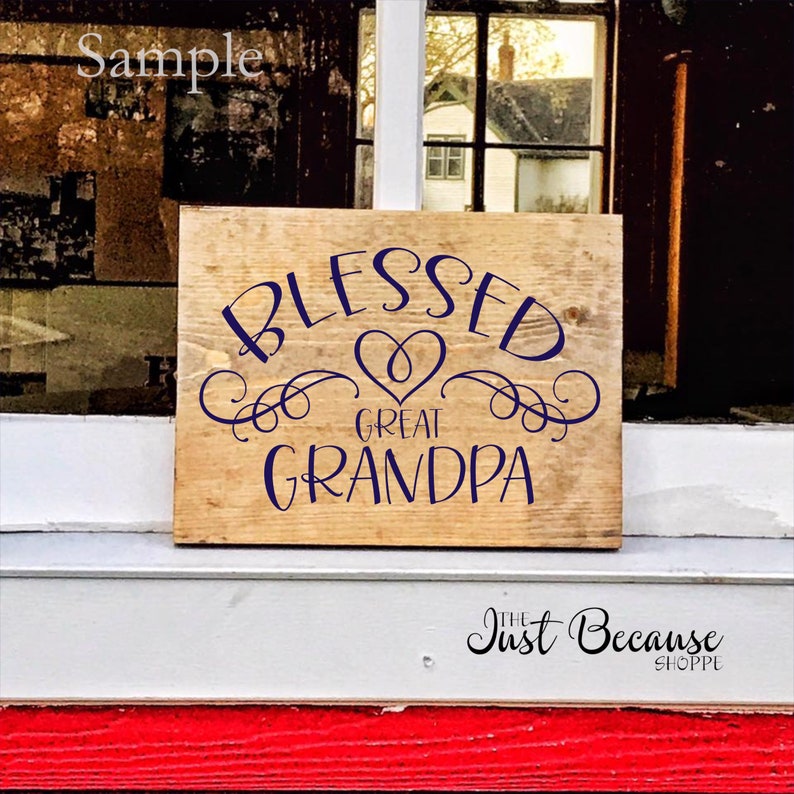 Sample
BLESSED
GREAT
GRANDPA
THE
Just Because
SHOPPE